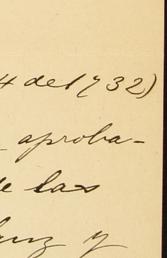 4 del 732)
aproba-
de las
y